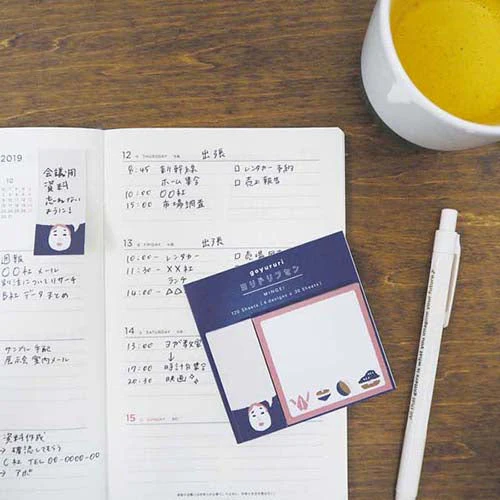 2019
10
会議用
資料
忘れない
ように！
週報
〇〇社 メール
別注についてリサーチ
B社 データまとめ
サンプル手配
展示会案内メール
資料作成
→ 確認してもらう
C社 TEL 00-0000-00
→ アポ
12 THURSDAY 出張
8:45 新幹線
ホーム集合
10:00 〇〇社
15:00 市場調査
□ レンタカー予約
□ 売上報告
13 FRIDAY 出張
10:00 ー レンタカー
11:30 - ××社
ランチ
14:00 ー △△
□ 売場
14 SATURDAY
13:00 ヨガ教室
↓
17:00 時計台集合
20:30 映画
15 SUNDAY
goyururi
ヨリドリフセン
MINGEI
120 Sheets (4 designs × 30 Sheets)